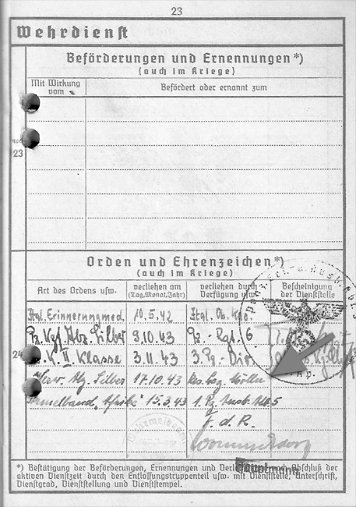 23
Wehrdienst
Beförderungen und Ernennungen*)
(auch im Kriege)
Mit Wirkung vom
Befördert oder ernannt zum
23
Orden und Ehrenzeichen*)
(auch im Kriege)
Art des Ordens usw.
verliehen am (Tag, Monat, Jahr)
verliehen durch Verfügung
Bescheinigung der Dienststelle
Ital. Erinnerungmed. 10.5.42 Ital. Ob. Kdo.
Pz. Kpf. Abz. Silber 3.10.43 Pz.-Rgt. 6
K. II. Klasse 3.11.43 3. Pz.-Div.
24
Verw. Abz. Silber 17.10.43
Ärmelband "Afrika" 15.3.43
J. d. R.
Hauptmann
*) Bestätigung der Beförderungen, Ernennungen und Abschluß der
aktiven Dienstzeit durch den Entlassungstruppenteil usw. mit Dienststelle, Unterschrift,
Dienstgrad, Dienststellung und Dienststempel.